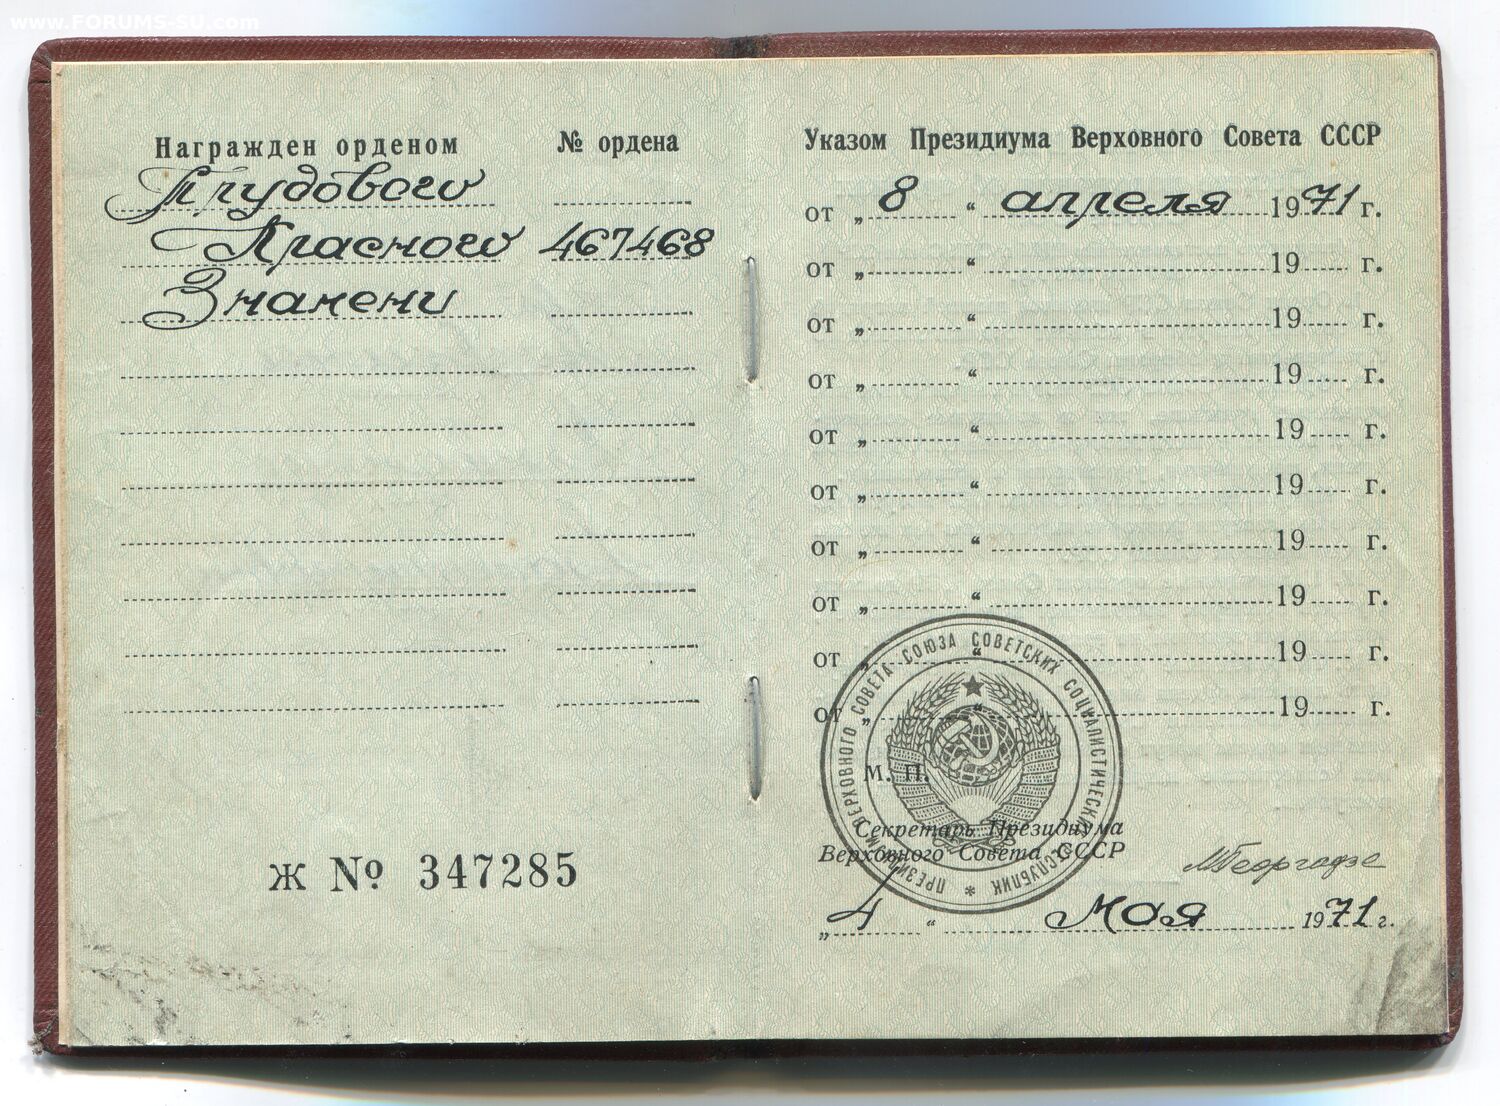 www.FORUMS-SU.com
Награжден орденом № ордена
Трудового
Красного 467468
Знамени
Ж № 347285
Указом Президиума Верховного Совета СССР
от „ 8 “ апреля 1971 г.
от „ “ 19 г.
от „ “ 19 г.
от „ “ 19 г.
от „ “ 19 г.
от „ “ 19 г.
от „ “ 19 г.
от „ “ 19 г.
от „ “ 19 г.
от „ “ 19 г.
ПРЕЗИДИУМ ВЕРХОВНОГО СОВЕТА СОЮЗА СОВЕТСКИХ СОЦИАЛИСТИЧЕСКИХ РЕСПУБЛИК *
М. П.
Секретарь Президиума
Верховного Совета СССР
МГеоргадзе
„ 4 “ мая 1971 г.